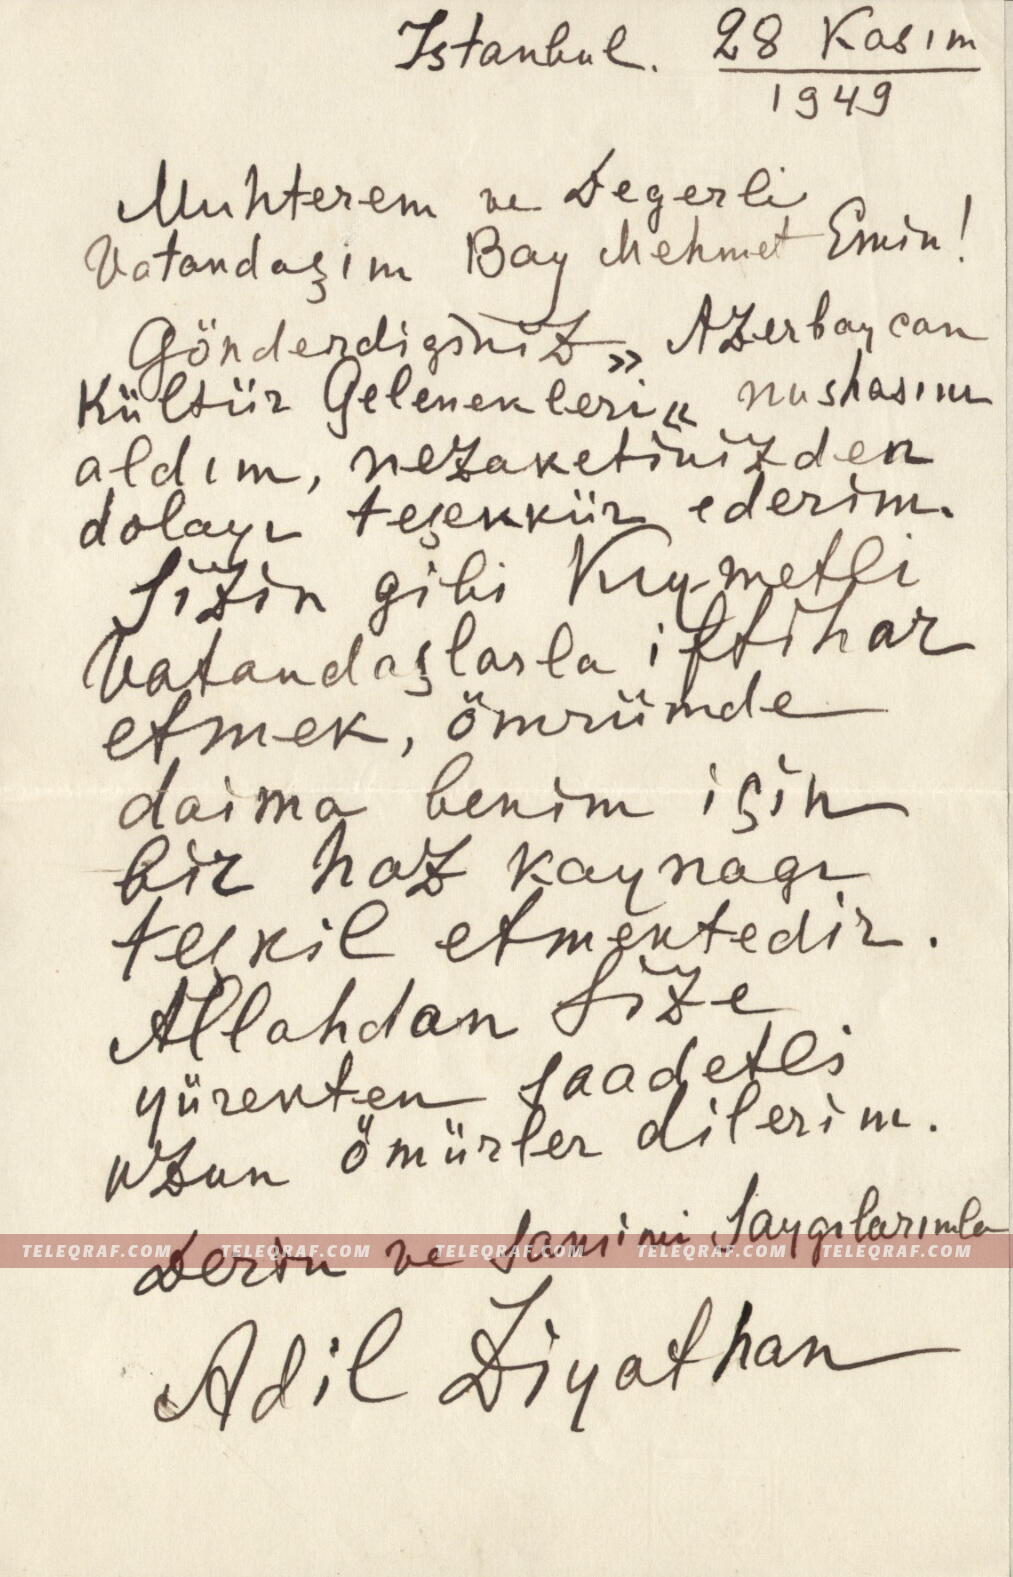 Istanbul. 28 Kasım
1949
Muhterem ve Degerli
Vatandaşım Bay Mehmet Emin!
Gönderdiginiz „Azerbaycan
Kültür Gelenekleri“ nushasını
aldım, nezaketinizden
dolayı teşekkür ederim.
Sizin gibi Kıymetli
Vatandaşlarla iftihar
etmek, ömrümde
daima benim için
bir haz kaynagı
teşkil etmektedir.
Allahdan Size
yürekten saadetli
uzun ömürler dilerim.
Derin ve Samimi Saygılarımla
TELEQRAF.COM TELEQRAF.COM TELEQRAF.COM TELEQRAF.COM TELEQRAF.COM
Adil Ziyathan